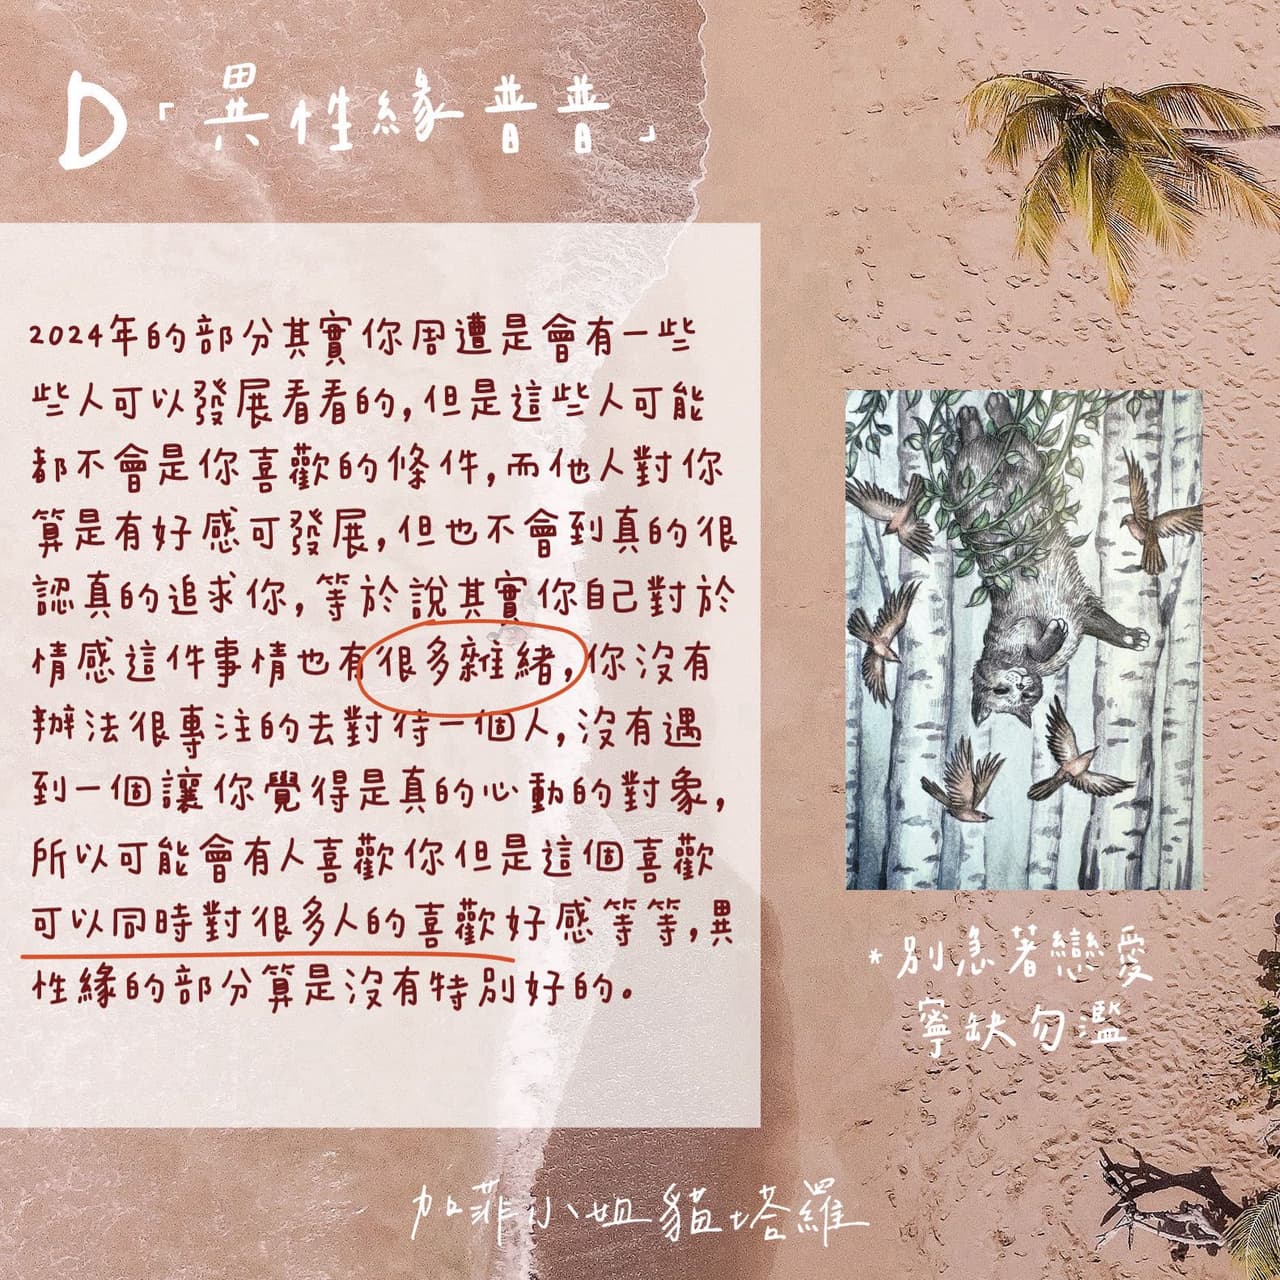 D「異性緣普普」
2024年的部分其實你周遭是會有一些
些人可以發展看看的,但是這些人可能
都不會是你喜歡的條件,而他人對你
算是有好感可發展,但也不會到真的很
認真的追求你,等於說其實你自己對於
情感這件事情也有很多雜緒,你沒有
辦法很專注的去對待一個人,沒有遇
到一個讓你覺得是真的心動的對象,
所以可能會有人喜歡你但是這個喜歡
可以同時對很多人的喜歡好感等等,異
性緣的部分算是沒有特別好的。
*別急著戀愛
寧缺勿濫
加菲小姐貓塔羅